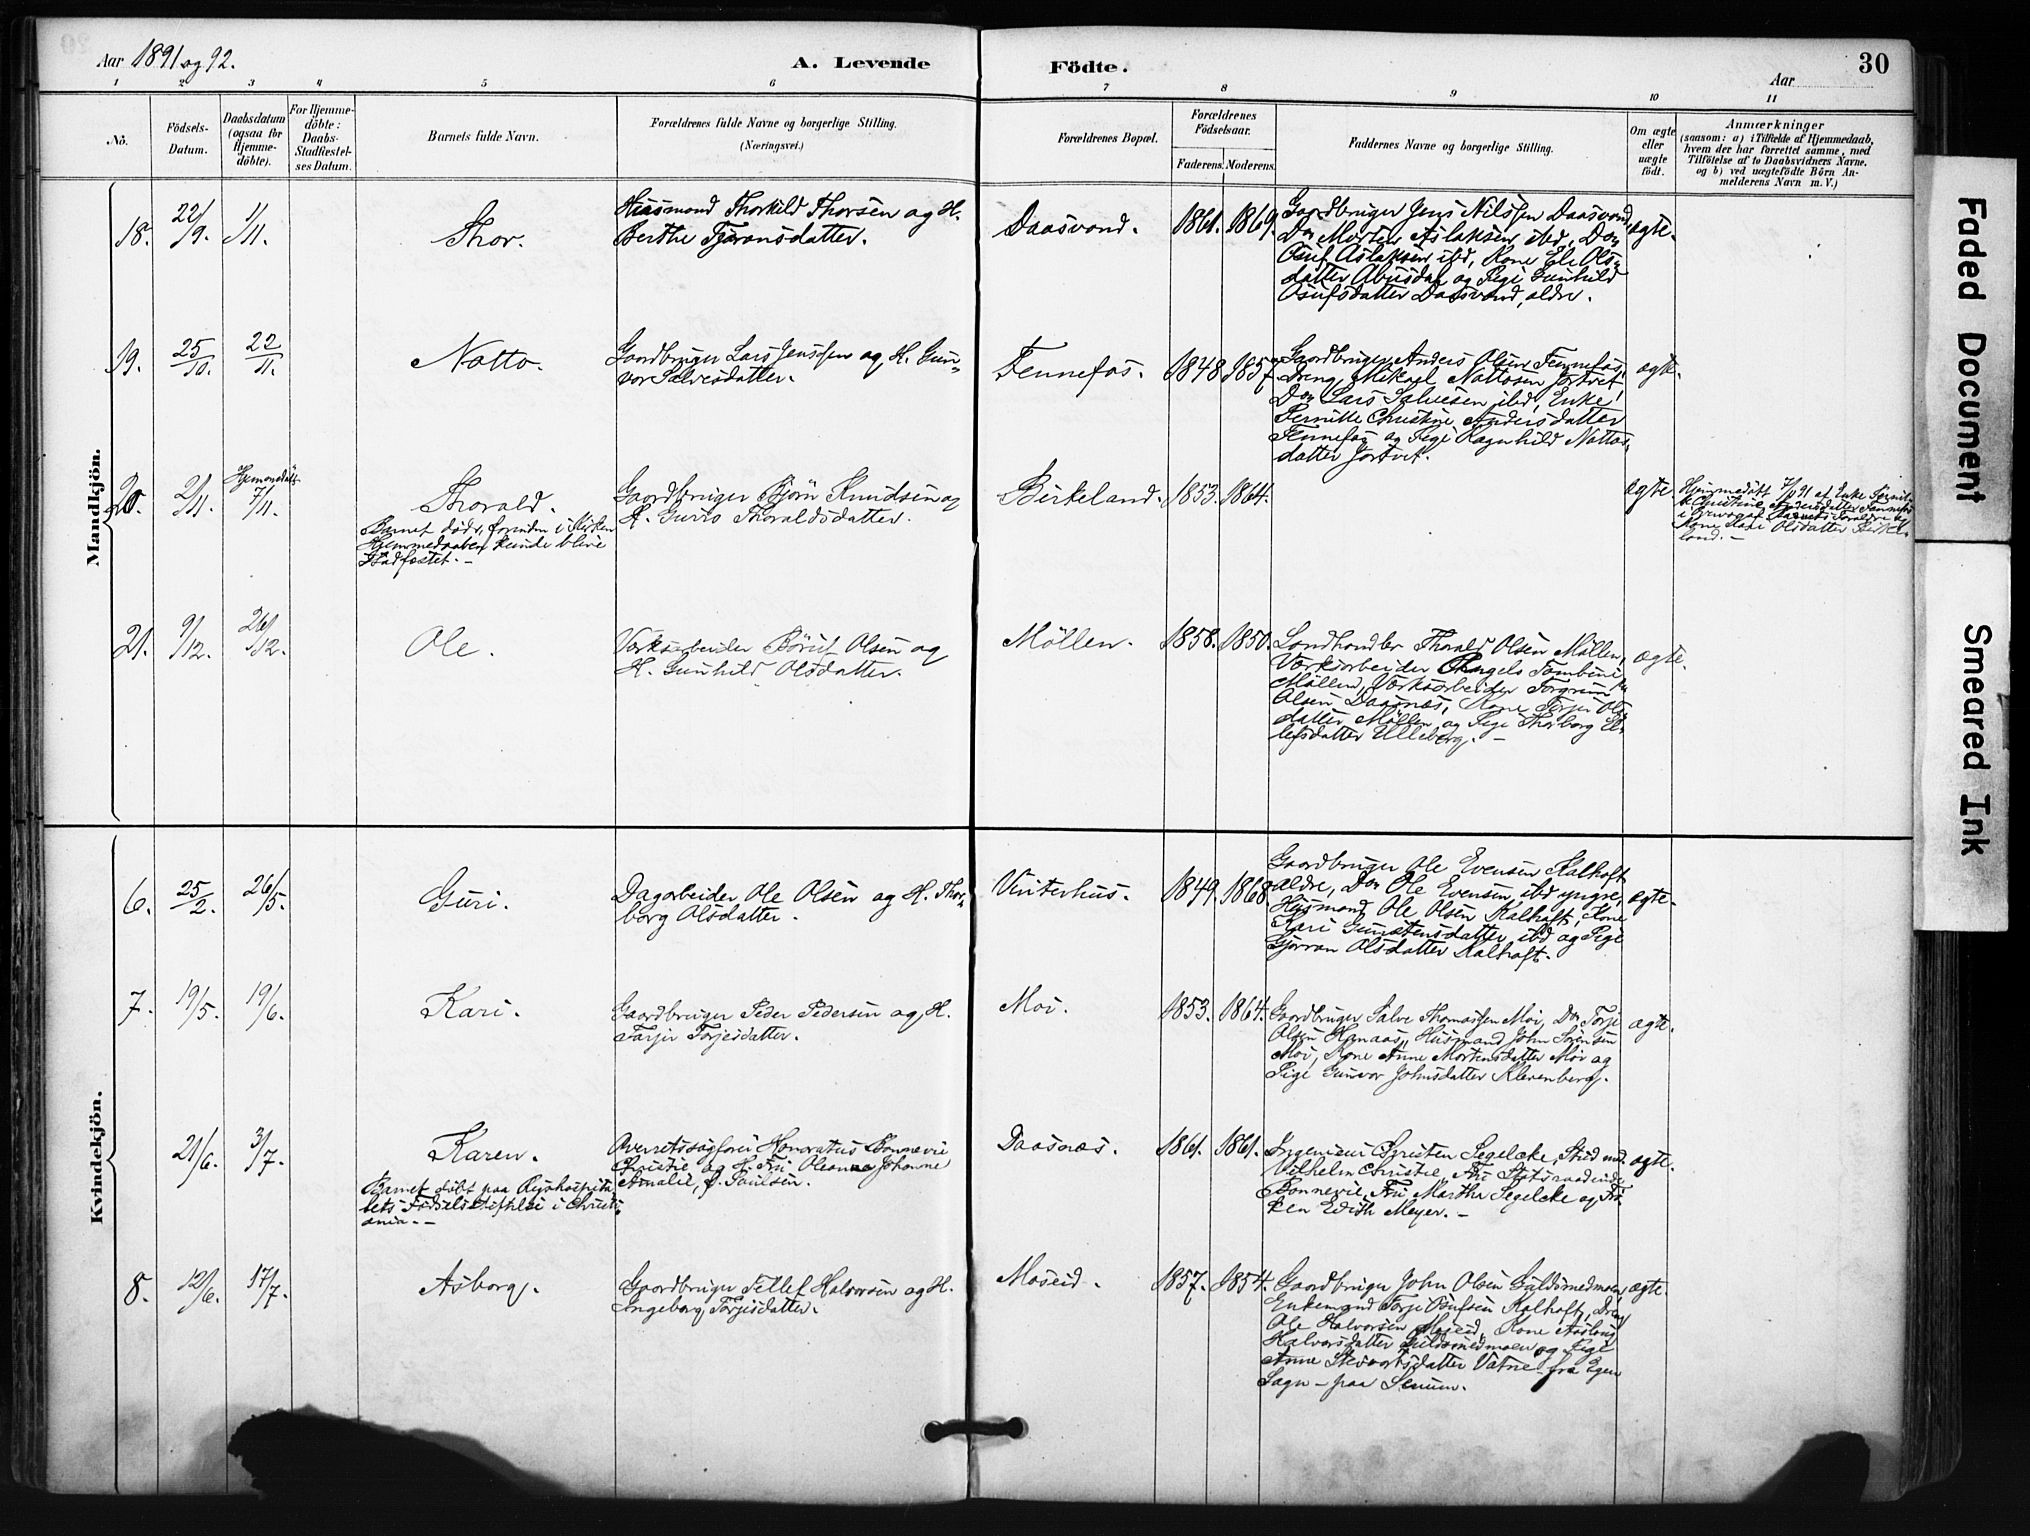 Aar 1891 og 92.
A. Levende Födte.
Aar
30
1 2 3 4 5 6 7 8 9 10 11
No.
Födsels-Datum.
Daabsdatum (ogsaa for Hjemme-döbte).
For Hjemme-döbte: Daabs-Stadfæstel-ses Datum.
Barnets fulde Navn.
Forældrenes fulde Navne og borgerlige Stilling.
(Næringsvei.)
Forældrenes Bopæl.
Forældrenes Födselsaar.
Faderens. Moderens.
Faddernes Navne og borgerlige Stilling.
Om ægte eller uægte födt.
Anmærkninger
(saasom: a) i Tilfælde af Hjemmedaab,
hvem der har forrettet samme, med
Tilföielse af to Daabsvidners Navne,
og b) ved uægtefödte Börn An-
melderens Navn m. V.)
Mandkjön.
18. 22/9. 1/11. Thor.
Husmand Thorkild Thorsen og H.
Berthe Tjøransdatter.
Daasvand. 1861. 1869.
Gaardbruger Jens Nilssen Daasvand,
Do Morten Aslaksen ibd, Do
Osuf Aslaksen ibd, Kone Eli Ols-
datter Abusdal og Pige Gunhild
Osufsdatter Daasvand, ældre.
ægte.
19. 25/10. 22/11. Natto.
Gaardbruger Lars Jenssen og H. Gun-
vor Salvesdatter.
Fennefos. 1848 1857
Gaardbruger Anders Olsen Fennefos,
Dreng Mikael Nattosen Jortvet
Do Lars Salvesen ibd, Enke
Pernille Christine Andersdatter
Fennefos og Pige Ragnhild Nattos-
datter Jortvet.
ægte.
20. 2/11. Hjemmedöbt 7/11. Thorald.
Barnet döde, forinden i Kirken
Hjemmedaaben kunde blive
Stadfæstet. -
Gaardbruger Bjørn Knudsen og
H. Gurro Thoraldsdatter.
Birkeland. 1853. 1864.
ægte.
Hjemmedöbt 7/11 91 af Enke Pernil-
le Christine Andersdatter Fennefos
i Nærvær af Barnets Forældre og
Kone Kari Olsdatter Birke-
land. -
21. 9/12. 26/12. Ole.
Værksarbeider Børut Olsen og
H. Gunhild Olsdatter.
Møllen. 1858. 1850.
Landhandler Thorald Olsen Møllen,
Værksarbeider Tambini
Møllen, Værksarbeider Torgrim
Olsen Daasnæs, Kone Torjer Ols-
datter Møllen og Pige Thorborg El-
lefsdatter Ulleberg. -
ægte.
Kvindekjön.
6. 25/2. 26/5. Guri.
Dagarbeider Ole Olsen og H. Thor-
borg Olsdatter.
Vinterhus. 1849. 1868.
Gaardbruger Ole Evensen Kalhoft
ældre, Do Ole Evensen ibd yngre,
Husmand Ole Olsen Kalhoft, Kone
Kari Gunstensdatter ibd og Pige
Gjøran Olsdatter Kalhoft.
ægte.
7. 19/5. 19/6. Kari.
Gaardbruger Peder Pedersen og H.
Torjer Torjesdatter.
Moi. 1853. 1864.
Gaardbruger Salve Thomassen Moi, Do Torje
Olsen Hanaas, Husmand John Sørensen
Moi, Kone Anne Mortensdatter Moi og
Pige Gunvor Johnsdatter Klevenberg.
ægte.
21/6. 3/7. Karen.
Barnet döbt paa Rigshospita-
lets Födselsstiftelse i Christi-
ania. -
Overretssagfører Honoratus Bonnevie
Christie og H. Fru Oleanna Johanne
Amalie, f. Paulsen.
Daasnæs. 1861. 1861.
Ingeniør Christen Segelcke, Stud med.
Vilhelm Christie, Fru Statsraadinde
Bonnevie, Fru Marthe Segelcke og Frø-
ken Edith Meyer. -
ægte.
8. 12/6. 17/7. Asborg.
Gaardbruger Tellef Halvorsen og H.
Ingeborg Torjesdatter.
Moseid. 1857. 1854.
Gaardbruger John Olsen Guldsmedmoen,
Enkemand Torje Osufsen Kalhoft, Dreng
Ole Halvorsen Moseid, Kone Aaslaug
Halvorsdatter Guldsmedmoen og Pige
Anne Vatne fra Egen
Sogn - paa Senum.
ægte.
Faded Document
Smeared Ink